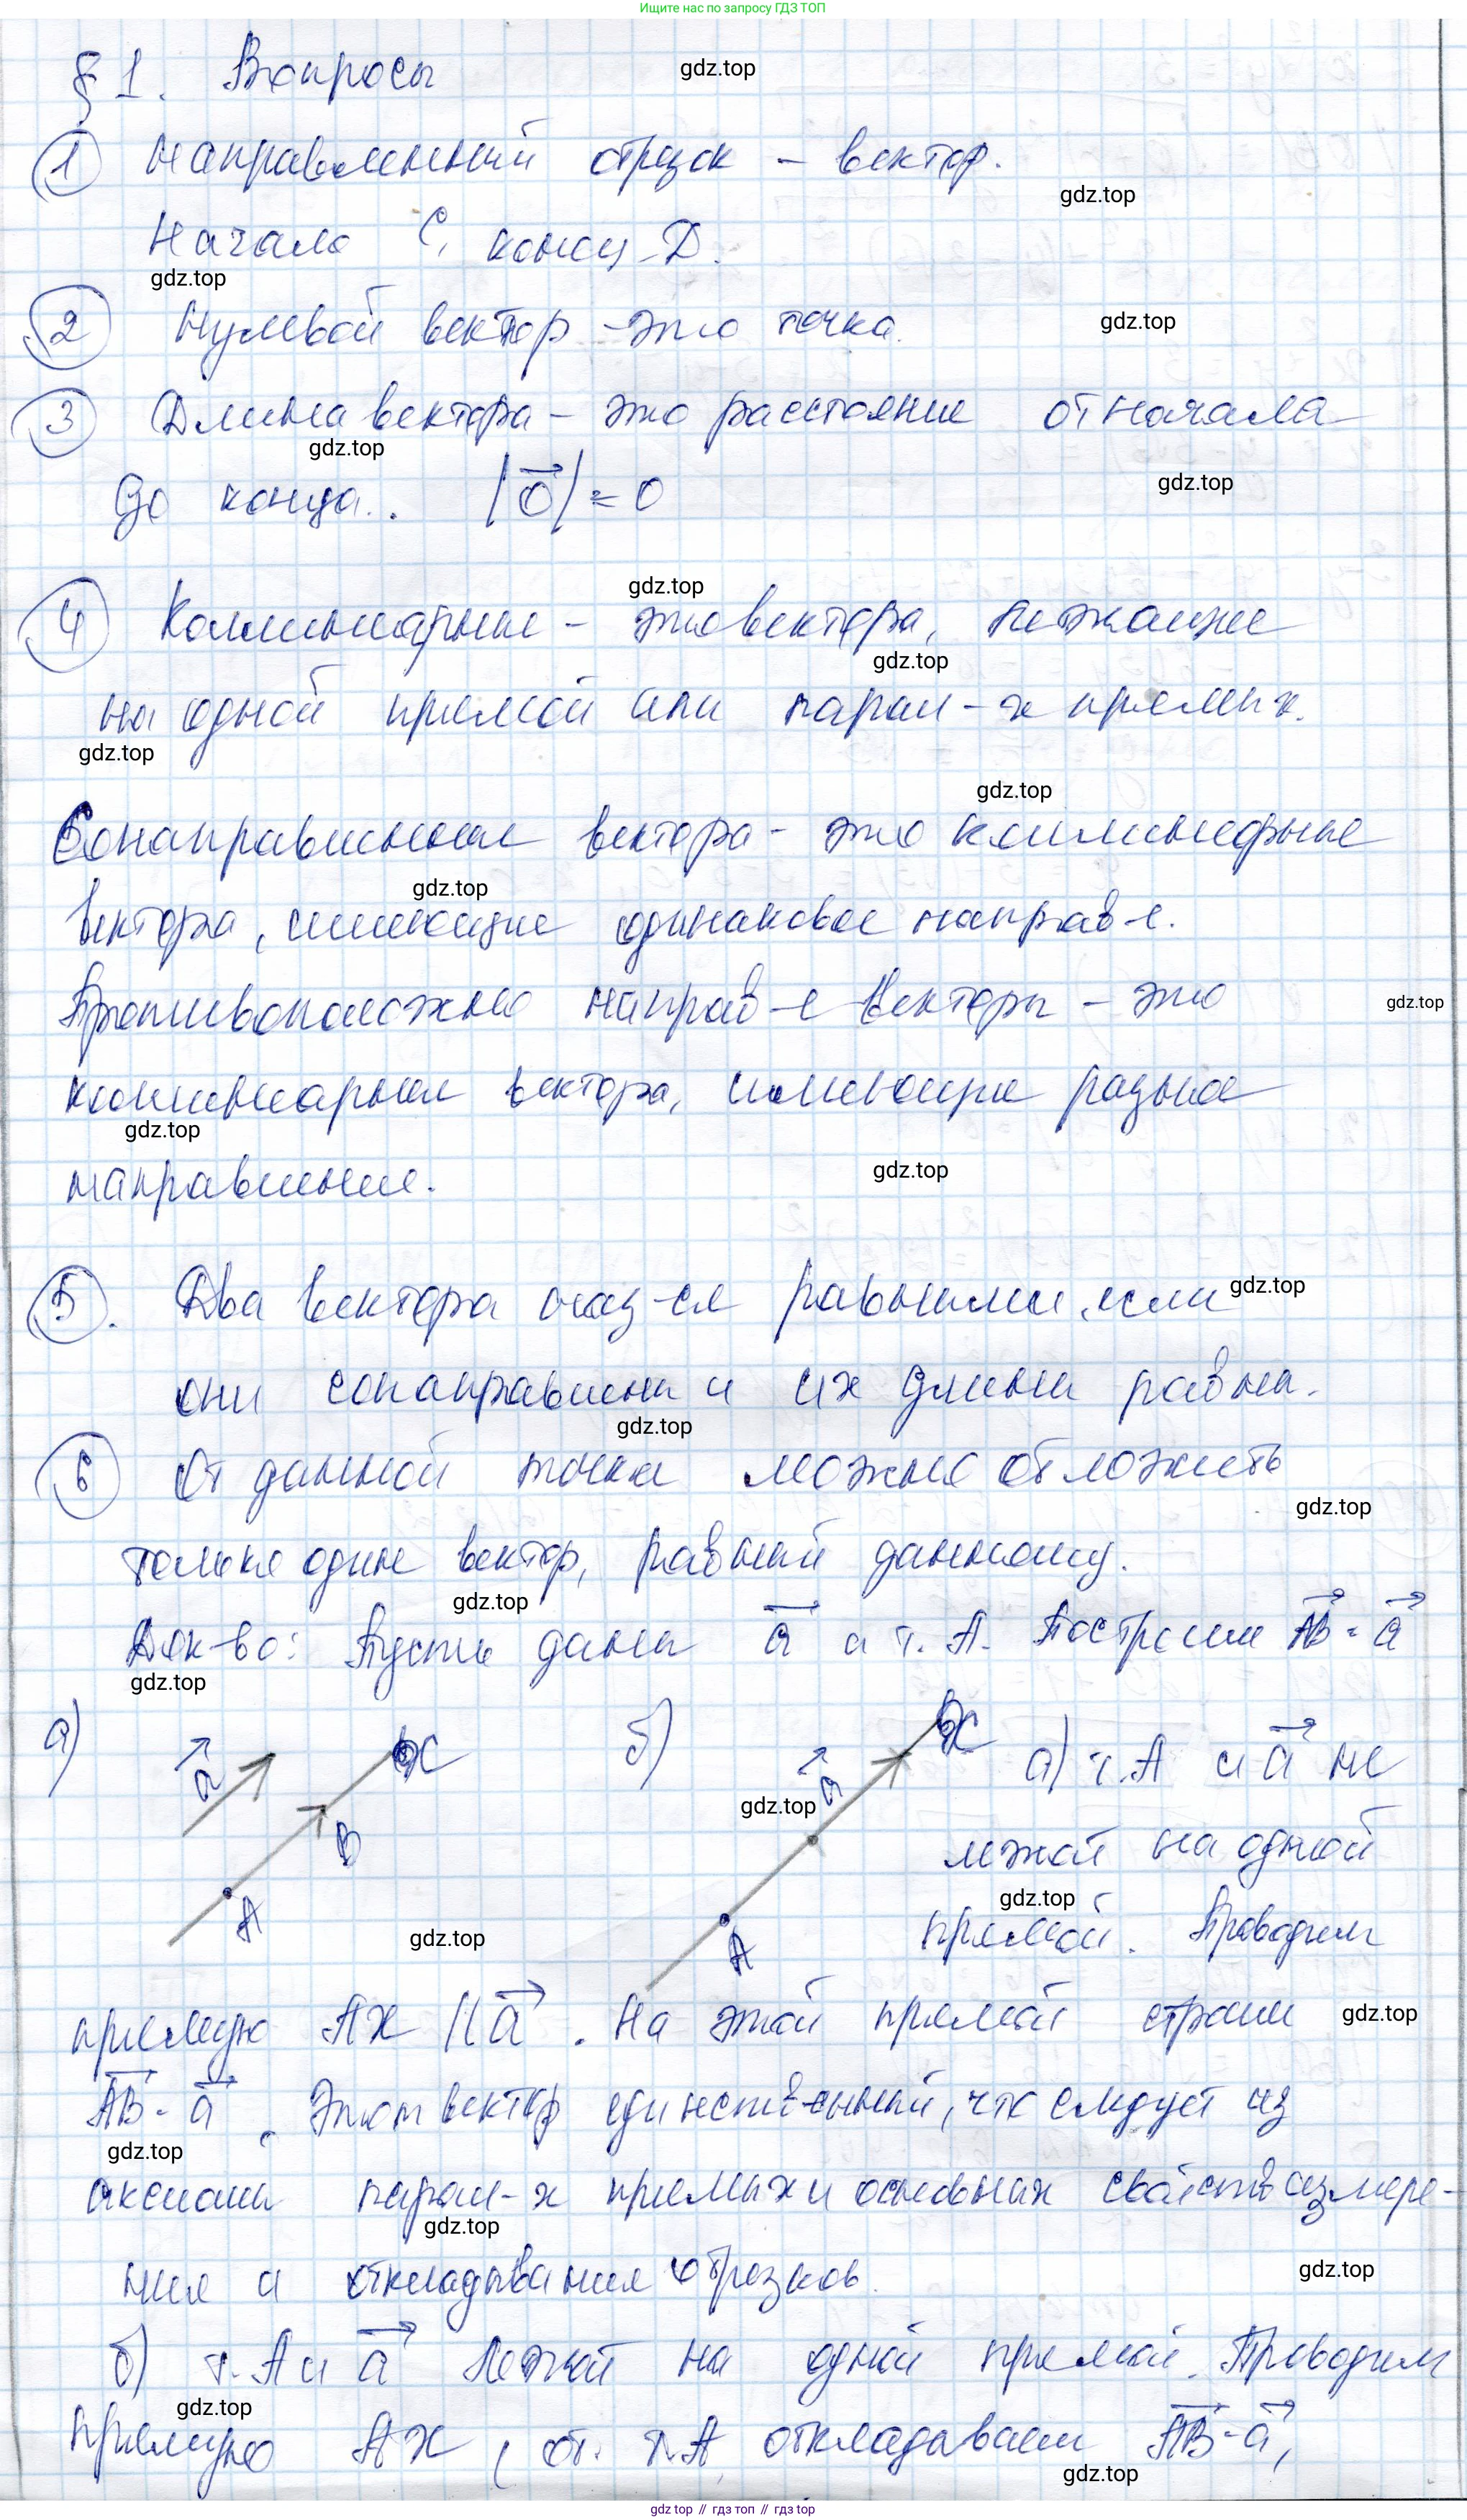 Ищите нас по запросу ГДЗ ТОП
§ 1. Вопросы
gdz.top
1 Направленный отрезок - вектор.
gdz.top
Начало C, конец D.
gdz.top
2 Нулевой вектор - это точка.
gdz.top
3 Длина вектора - это расстояние от начала
gdz.top
до конца. |0| = 0
gdz.top
gdz.top
4 Коллинеарные - это вектора, лежащие
gdz.top
на одной прямой или парал-х прямых.
gdz.top
gdz.top
Сонаправленные вектора - это коллинеарные
gdz.top
вектора, имеющие одинаковое направ-е.
Противоположно направ-е векторы - это
gdz.top
коллинеарные вектора, имеющие разное
gdz.top
направление.
gdz.top
5. Два вектора наз-ся равными, если
gdz.top
они сонаправлены и их длины равны.
gdz.top
6 От данной точки можно отложить
gdz.top
только один вектор, равный данному.
gdz.top
Док-во: Пусть даны a и т. A. Построим AB = a
gdz.top
а) a X B A
б) a X A
gdz.top
а) т. A и a не
лежат на одной
gdz.top
прямой. Проводим
gdz.top
прямую AX || a. На этой прямой строим
gdz.top
AB = a. Этот вектор единств-енный, что следует из
gdz.top
аксиомы парал-х прямых и основных свойств измере-
gdz.top
ния и откладывания отрезков.
gdz.top
б) т. A и a лежат на одной прямой. Проводим
gdz.top
прямую AX, от т. A откладываем AB = a,
gdz.top
gdz.top // гдз топ // gdz.top